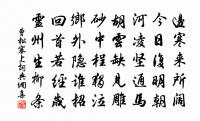 邊寒來所闊
今日復明朝
河凌堅通馬
胡雲缺見雕
砂中程獨泣
鄉外隱誰招
回首若經歲
靈州生柳條
曹松塞上詞典網集